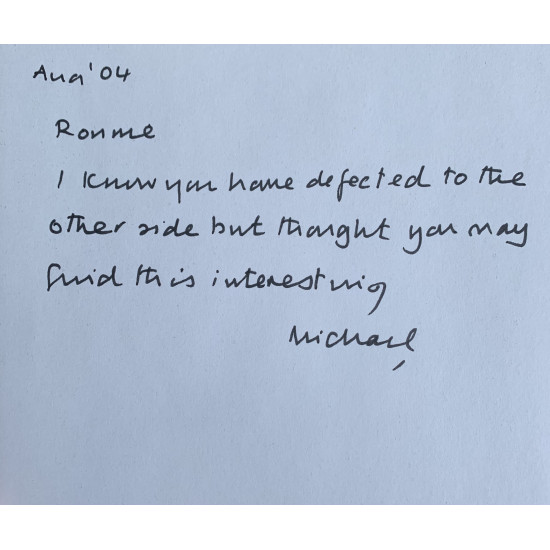 Aug '04
Ronnie
I know you have defected to the
other side but thought you may
find this interesting
Michael,